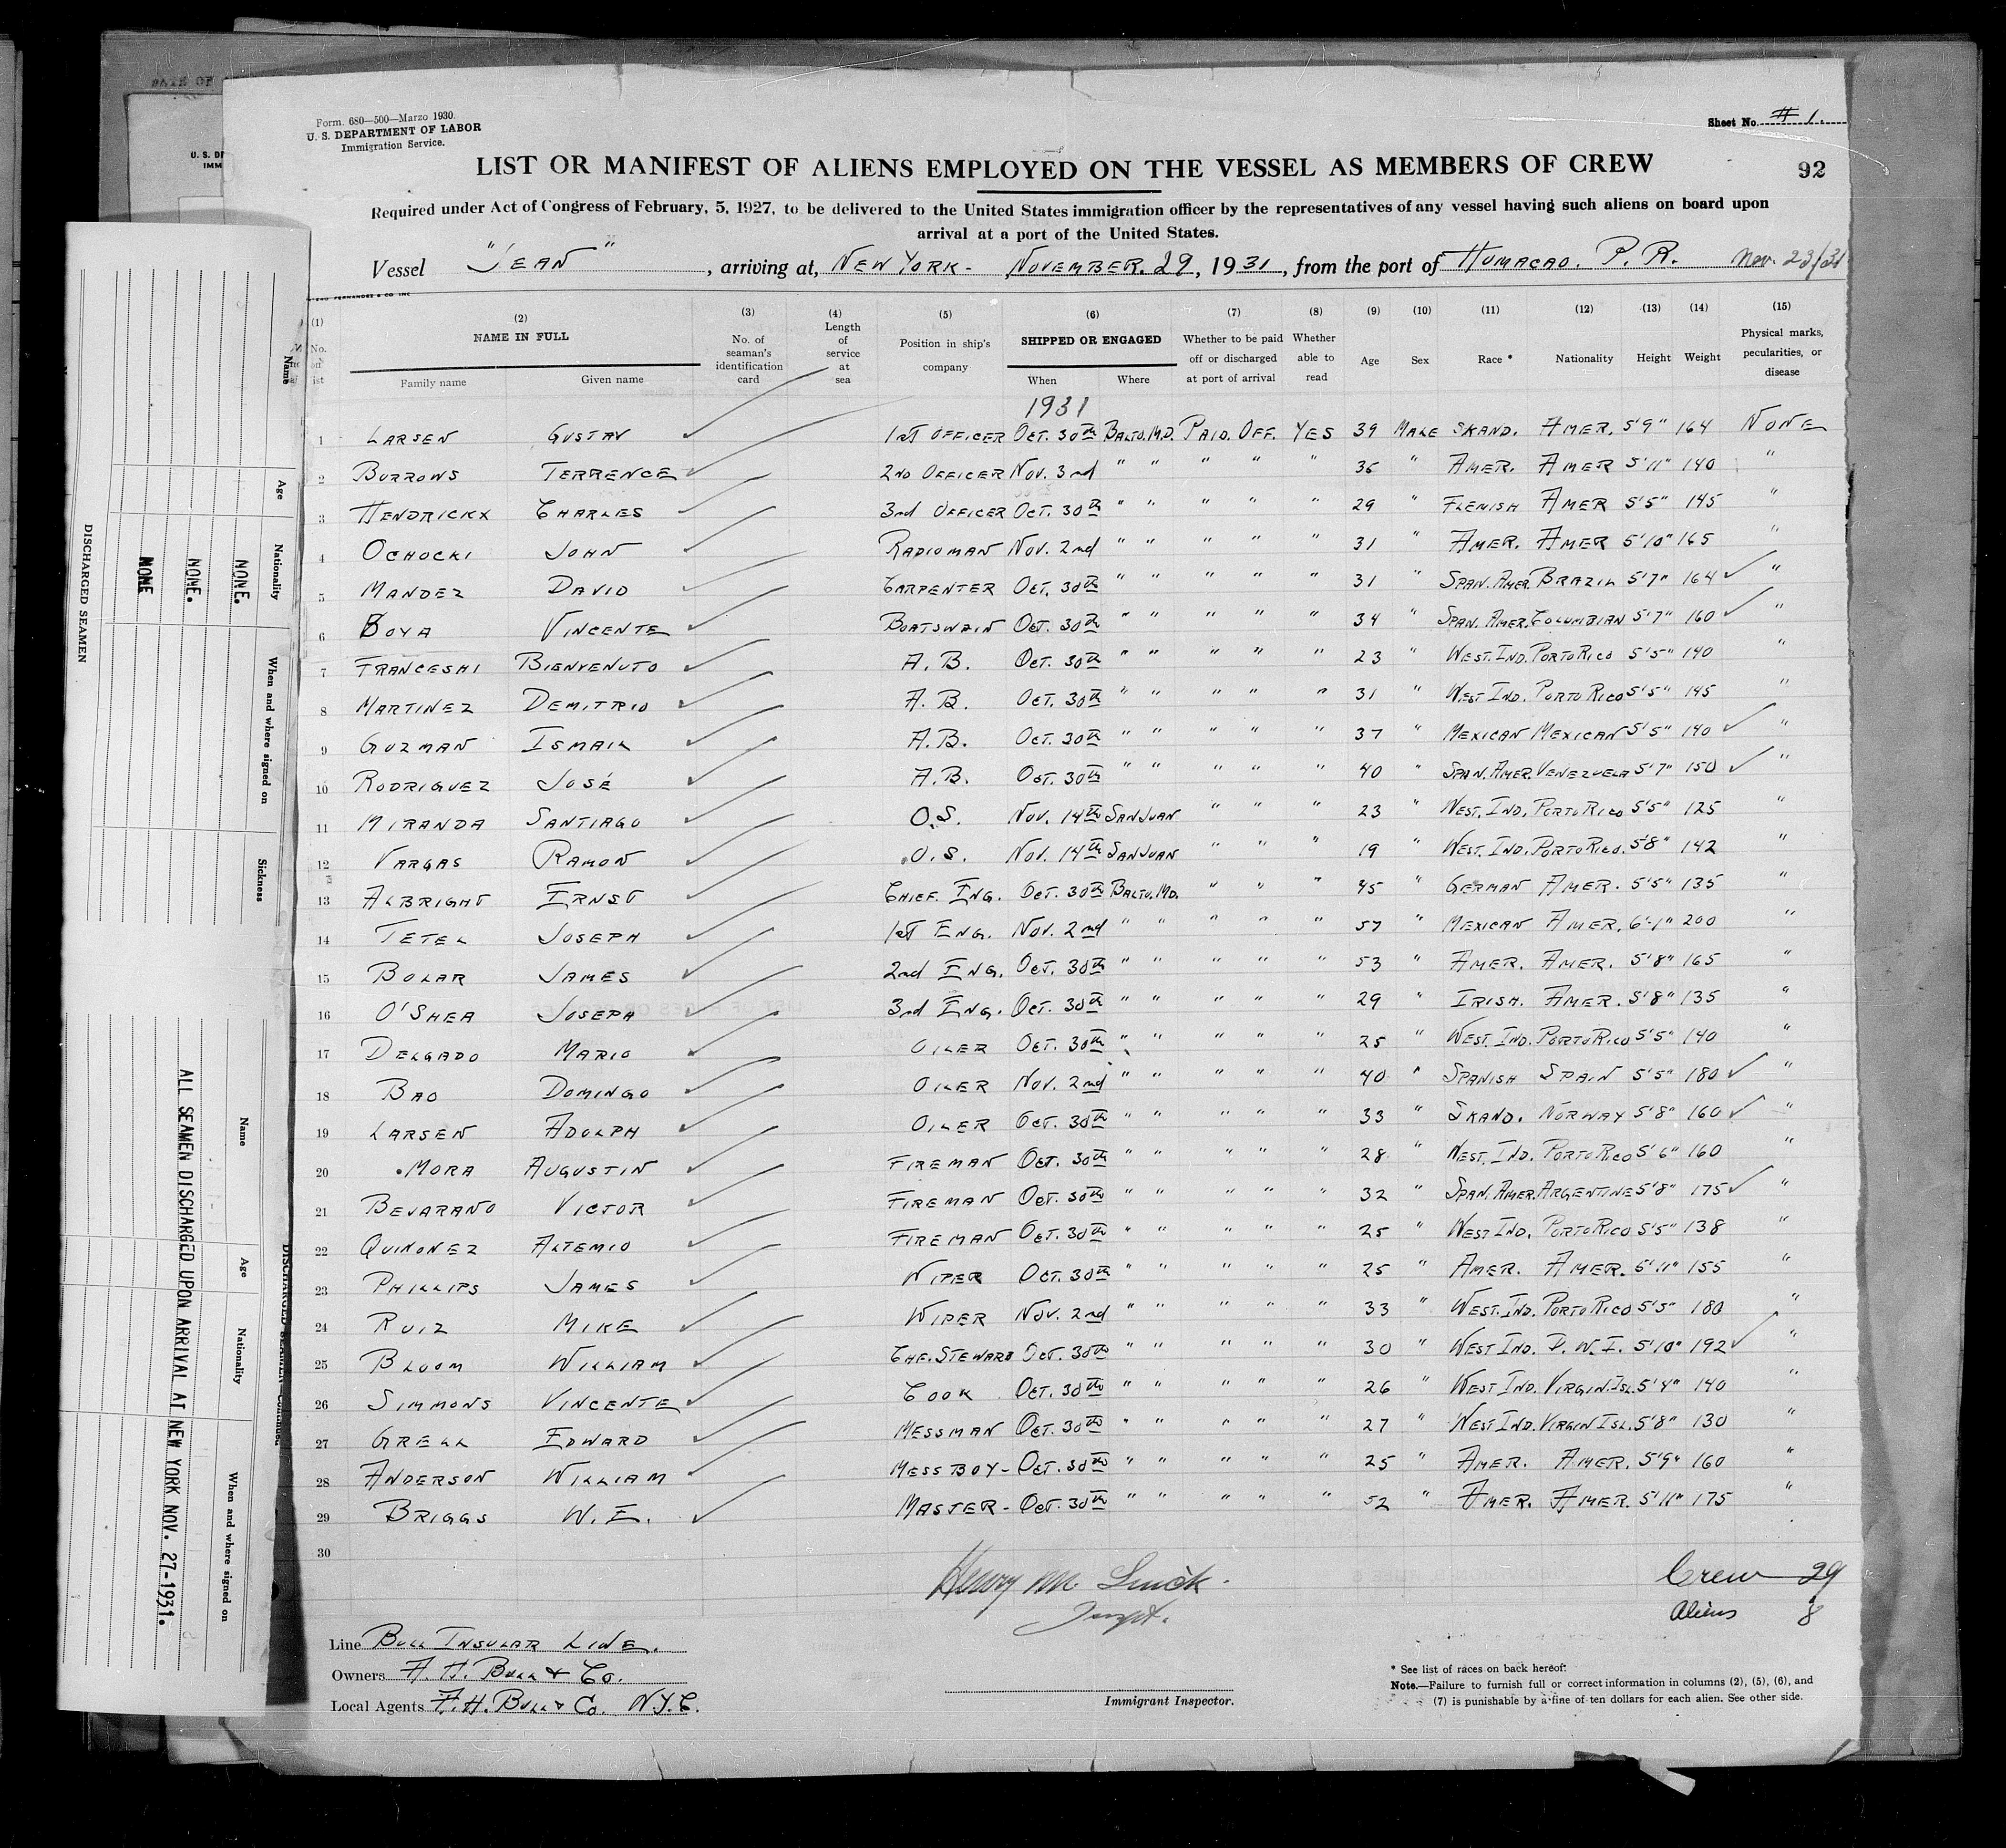 Form. 680—500—Marzo 1930.
U. S. DEPARTMENT OF LABOR
Immigration Service.
Sheet No. # 1.
LIST OR MANIFEST OF ALIENS EMPLOYED ON THE VESSEL AS MEMBERS OF CREW
92
Required under Act of Congress of February, 5, 1927, to be delivered to the United States immigration officer by the representatives of any vessel having such aliens on board upon
arrival at a port of the United States.
Vessel "JEAN", arriving at, NEW YORK - NOVEMBER. 29, 1931, from the port of HUMACAO. P. R. Nov. 23/31
(1) (2) (3) (4) (5) (6) (7) (8) (9) (10) (11) (12) (13) (14) (15)
NAME IN FULL
Family name Given name
No. of seaman's identification card
Length of service at sea
Position in ship's company
SHIPPED OR ENGAGED
When Where
Whether to be paid off or discharged at port of arrival
Whether able to read
Age Sex Race * Nationality Height Weight
Physical marks, pecularities, or disease
1931
1 LARSEN GUSTAV 1st OFFICER OCT. 30th BALTO. M.D. PAID. OFF. YES 39 MALE SKAND. AMER. 5'9" 164 NONE
2 BURROWS TERRENCE 2ND OFFICER NOV. 3rd " " " " " 36 " AMER. AMER 5'11" 140 "
3 HENDRICKX CHARLES 3rd OFFICER OCT. 30th " " " " " 29 " FLEMISH AMER 5'5" 145 "
4 OCHOCKI JOHN RADIOMAN NOV. 2nd " " " " " 31 " AMER. AMER 5'10" 165 "
5 MANDEZ DAVID CARPENTER OCT. 30th " " " " " 31 " SPAN. AMER. BRAZIL 5'7" 164 "
6 BOYA VINCENTE BOATSWAIN OCT. 30th " " " " " 34 " SPAN. AMER. COLUMBIAN 5'7" 160 "
7 FRANCESHI BIENVENUTO A. B. OCT. 30th " " " " " 23 " WEST. IND. PORTO RICO 5'5" 140 "
8 MARTINEZ DEMITRIO A. B. OCT. 30th " " " " " 31 " WEST IND. PORTO RICO 5'5" 145 "
9 GUZMAN ISMAIL A. B. OCT. 30th " " " " " 37 " MEXICAN MEXICAN 5'5" 140 "
10 RODRIGUEZ JOSÉ A. B. OCT. 30th " " " " " 40 " SPAN. AMER. VENEZUELA 5'7" 150 "
11 MIRANDA SANTIAGO O.S. NOV. 14th SAN JUAN " " " 23 " WEST. IND. PORTO RICO 5'5" 125 "
12 VARGAS RAMON O.S. NOV. 14th SAN JUAN " " " 19 " WEST. IND. PORTO RICO. 5'8" 142 "
13 ALBRIGHT ERNST CHIEF. ENG. OCT. 30th BALTO. MD. " " " 45 " GERMAN AMER. 5'5" 135 "
14 TETEL JOSEPH 1st ENG. NOV. 2nd " " " " " 57 " MEXICAN AMER. 6'-1" 200 "
15 BOLAR JAMES 2nd ENG. OCT. 30th " " " " " 53 " AMER. AMER. 5'8" 165 "
16 O'SHEA JOSEPH 3rd ENG. OCT. 30th " " " " " 29 " IRISH. AMER. 5'8" 135 "
17 DELGADO MARIO OILER OCT. 30th " " " " " 25 " WEST. IND. PORTO RICO 5'5" 140 "
18 BAO DOMINGO OILER NOV. 2nd " " " " " 40 " SPANISH SPAIN 5'5" 180 "
19 LARSEN ADOLPH OILER OCT. 30th " " " " " 33 " SKAND. NORWAY 5'8" 160 "
20 MORA AUGUSTIN FIREMAN OCT. 30th " " " " " 28 " WEST. IND. PORTO RICO 5'6" 160 "
21 BEJARANO VICTOR FIREMAN OCT. 30th " " " " " 32 " SPAN. AMER. ARGENTINE 5'8" 175 "
22 QUINONEZ ALTEMIO FIREMAN OCT. 30th " " " " " 25 " WEST IND. PORTO RICO 5'5" 138 "
23 PHILLIPS JAMES WIPER OCT. 30th " " " " " 25 " AMER. AMER. 6'11" 155 "
24 RUIZ MIKE WIPER NOV. 2nd " " " " " 33 " WEST. IND. PORTO RICO 5'5" 180 "
25 BLOOM WILLIAM CHF. STEWARD OCT. 30th " " " " " 30 " WEST IND. D. W. I. 5'10" 192 "
26 SIMMONS VINCENTE COOK OCT. 30th " " " " " 26 " WEST IND. VIRGIN. ISL. 5'4" 140 "
27 GRELL EDWARD MESSMAN OCT. 30th " " " " " 27 " WEST IND. VIRGIN ISL. 5'8" 130 "
28 ANDERSON WILLIAM MESS BOY - OCT. 30th " " " " " 25 " AMER. AMER. 5'9" 160 "
29 BRIGGS W. E. MASTER - OCT. 30th " " " " " 52 " AMER. AMER. 5'11" 175 "
30
Henry M.
Crew 29
Aliens 8
Line BULL INSULAR LINE.
Owners A. H. BULL & Co.
Local Agents A. H. BULL & Co. N.Y.C.
Immigrant Inspector.
* See list of races on back hereof.
Note.—Failure to furnish full or correct information in columns (2), (5), (6), and
(7) is punishable by a fine of ten dollars for each alien. See other side.
DISCHARGED SEAMEN
Name Age Nationality When and where signed on Sickness
NONE
NONE.
NONE.
Name Age Nationality When and where signed on
ALL SEAMEN DISCHARGED UPON ARRIVAL AT NEW YORK NOV. 27-1931.